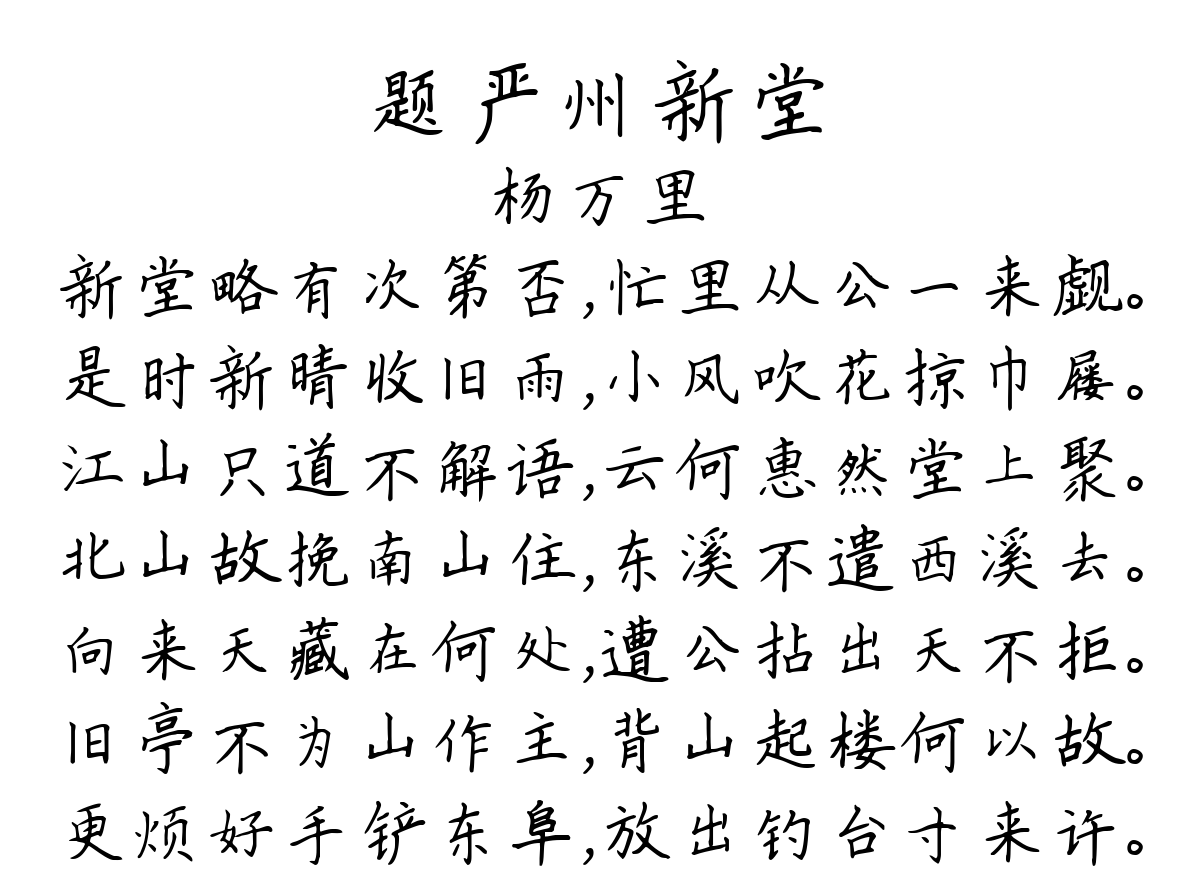 题严州新堂
杨万里
新堂略有次第否,忙里从公一来觑。
是时新晴收旧雨,小风吹花掠巾屦。
江山只道不解语,云何惠然堂上聚。
北山故挽南山住,东溪不遣西溪去。
向来天藏在何处,遭公拈出天不拒。
旧亭不为山作主,背山起楼何以故。
更烦好手铲东阜,放出钓台寸来许。